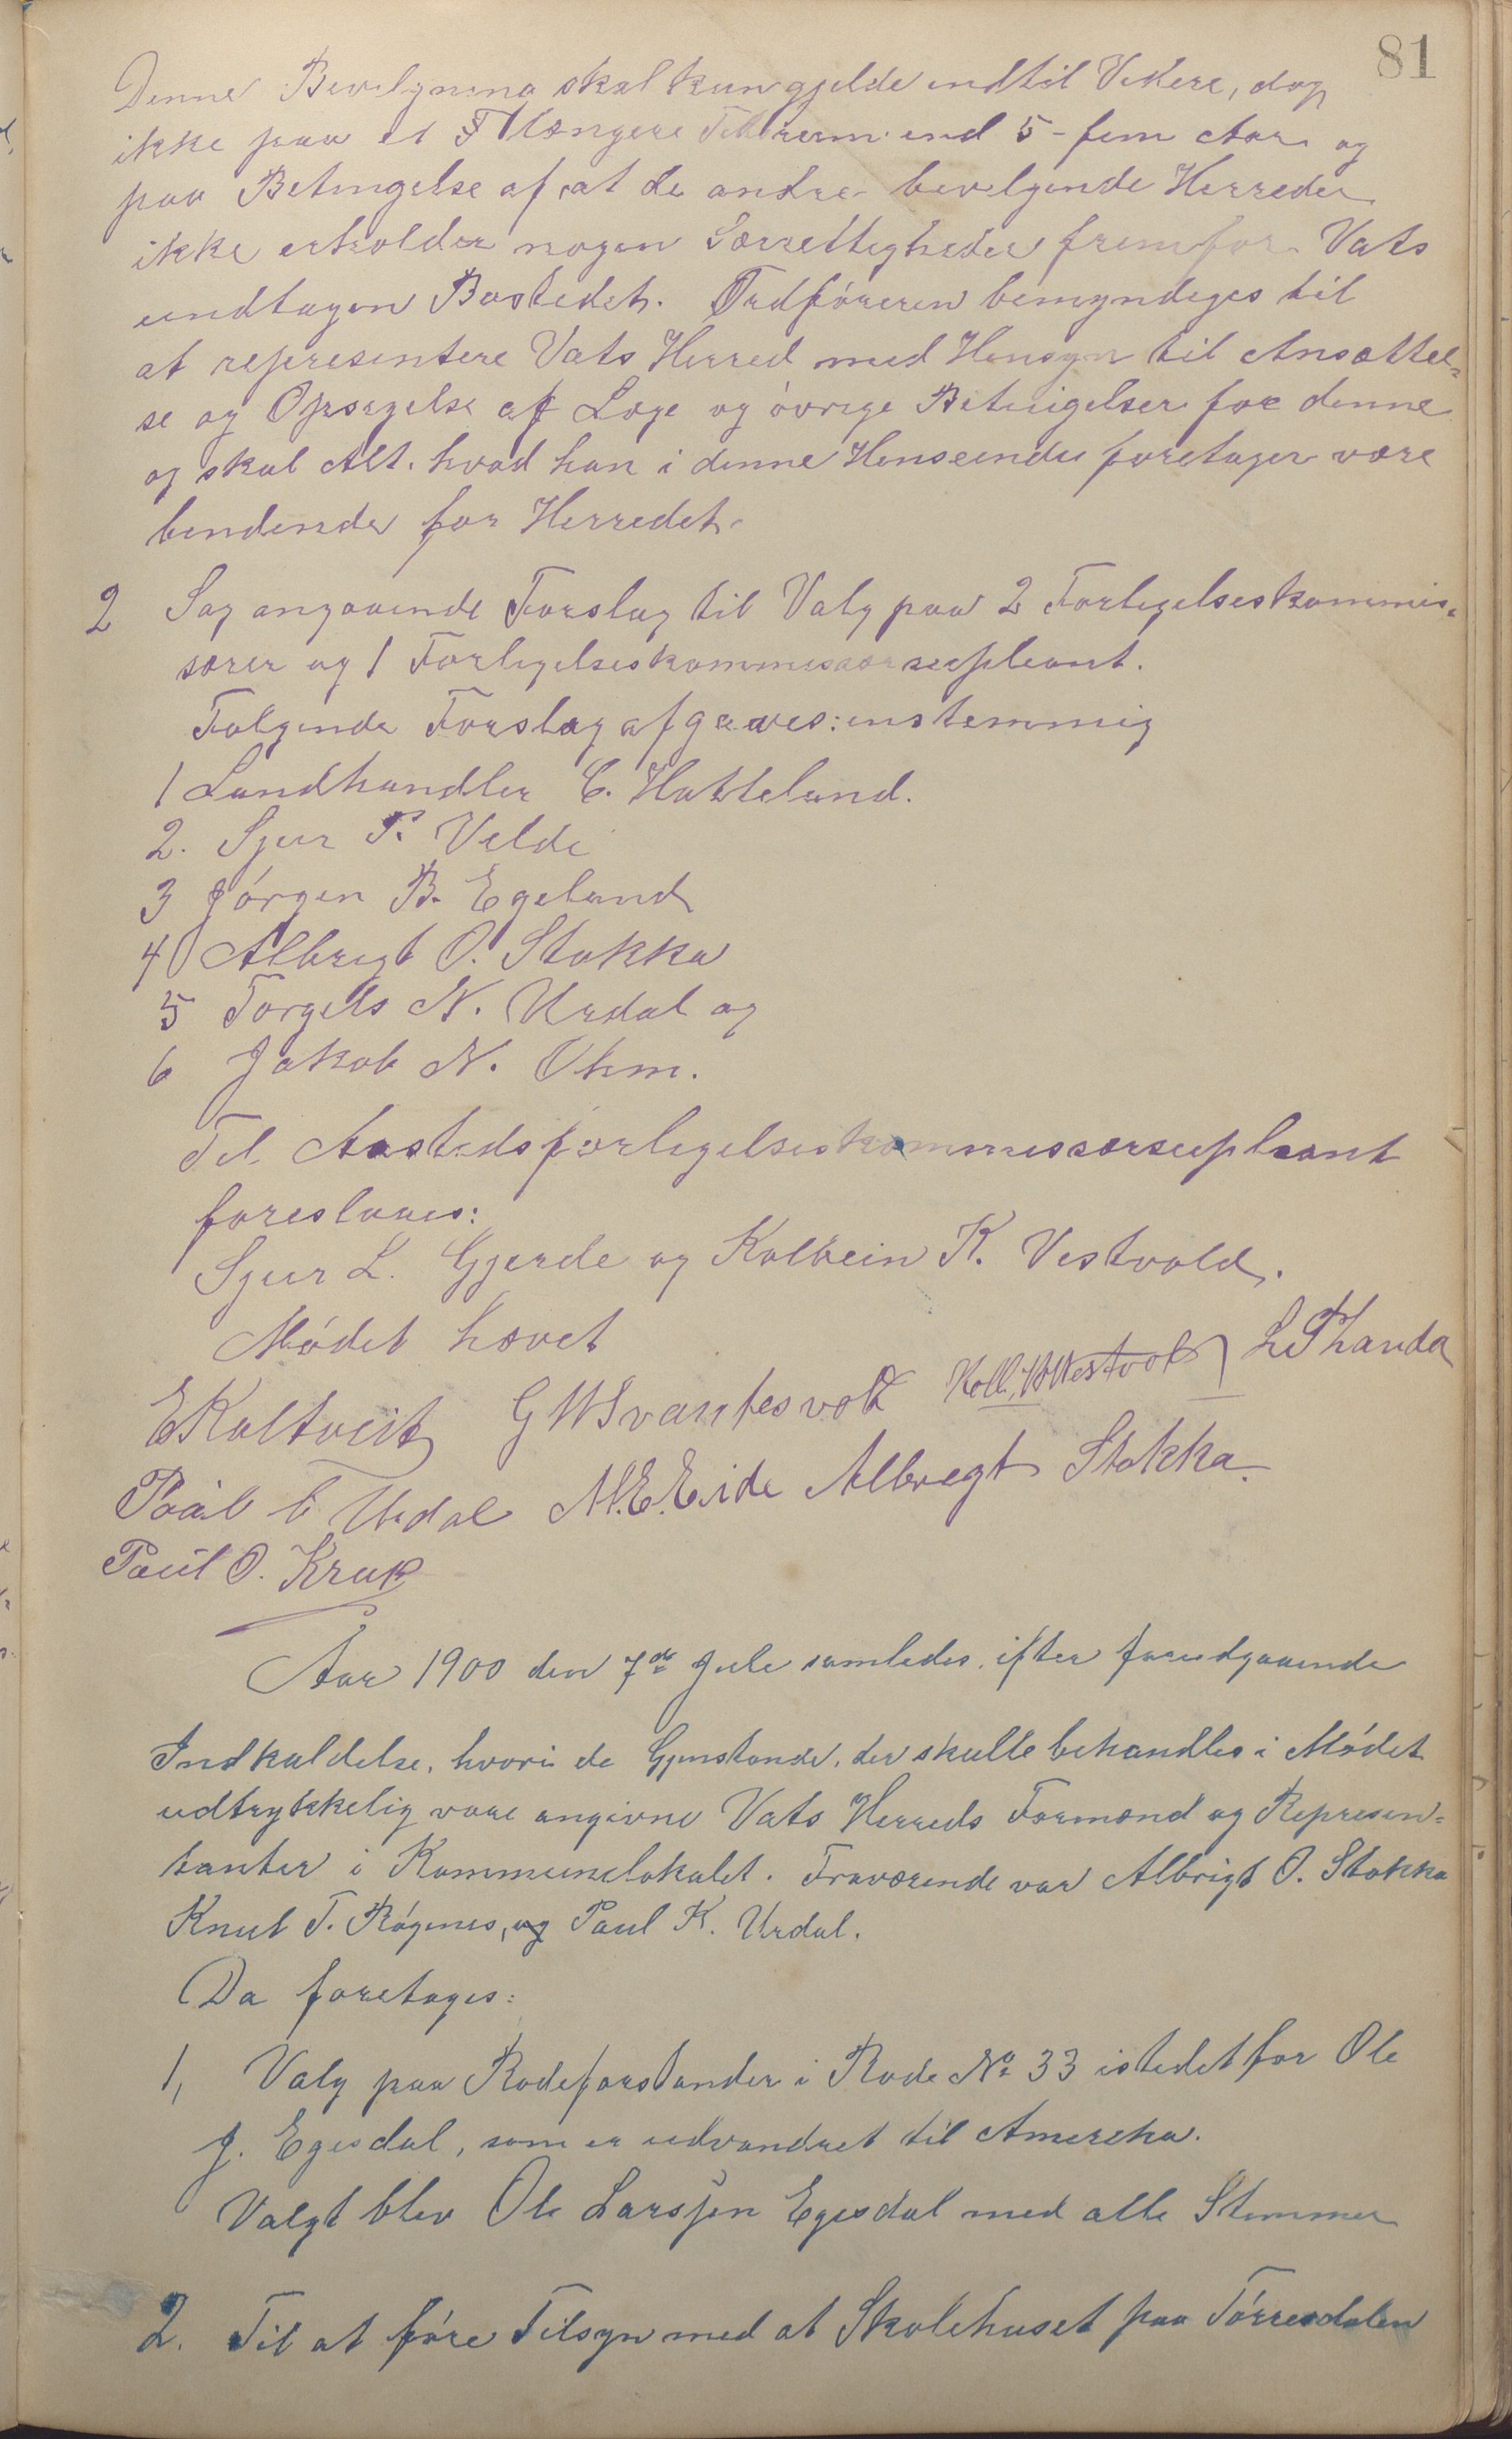 81
Denne Bevilgning skal kun gjelde indtil Videre, dog
ikke paa et længere Tidsrum end 5 - fem Aar og
paa Betingelse af, at de andre bevilgende Herreder
ikke erholder nogen Særrettigheder fremfor Vats
undtagen Bostedet. Ordføreren bemyndiges til
at representere Vats Herred med Hensyn til Ansættel-
se og Opsigelse af Læge og øvrige Betingelser for denne
og skal Alt. hvad han i denne Henseende foretager være
bindende for Herredet.
2 Sag angaaende Forslag til Valg paa 2 Forligelseskommis-
særer og 1 Forligelseskommissærsupleant.
Følgende Forslag afgaves: enstemmig
1 Landhandler C. Hatteland.
2. Sjur P. Velde
3 Jørgen B. Egeland
4 Albrigt O. Stokka
5 Torgils N. Urdal og
6 Jakob N. Ohm.
Til Aastedsforligelseskommissærsupleant
foreslaaes:
Sjur L. Gjerde og Kolbein K. Vestvold.
Mødet hævet
EKaltveit G W Svantesvold Kolb. K Westvold L P Landa
Paal C Urdal M. E. Eide Albregt Stokka.
Paul O. Krak
Aar 1900 den 7de Jule samledes. efter forudgaaende
Indkaldelse, hvori de Gjenstande, der skulle behandles i Mødet
udtrykkelig vare angivne Vats Herreds Formænd og Represen-
tanter i Kommunelokalet. Fraværende var Albrigt O. Stokka
Knut T. Røgenes, og Paul K. Urdal.
Da foretages:
1, Valg paa Rodeforstander i Rode No 33 istedetfor Ole
J. Egesdal, som er udvandret til Amereka.
Valgt blev Ole Larssen Egesdal med alle Stemmer
2. Til at føre Tilsyn med at Skolehuset paa Tørresdalen